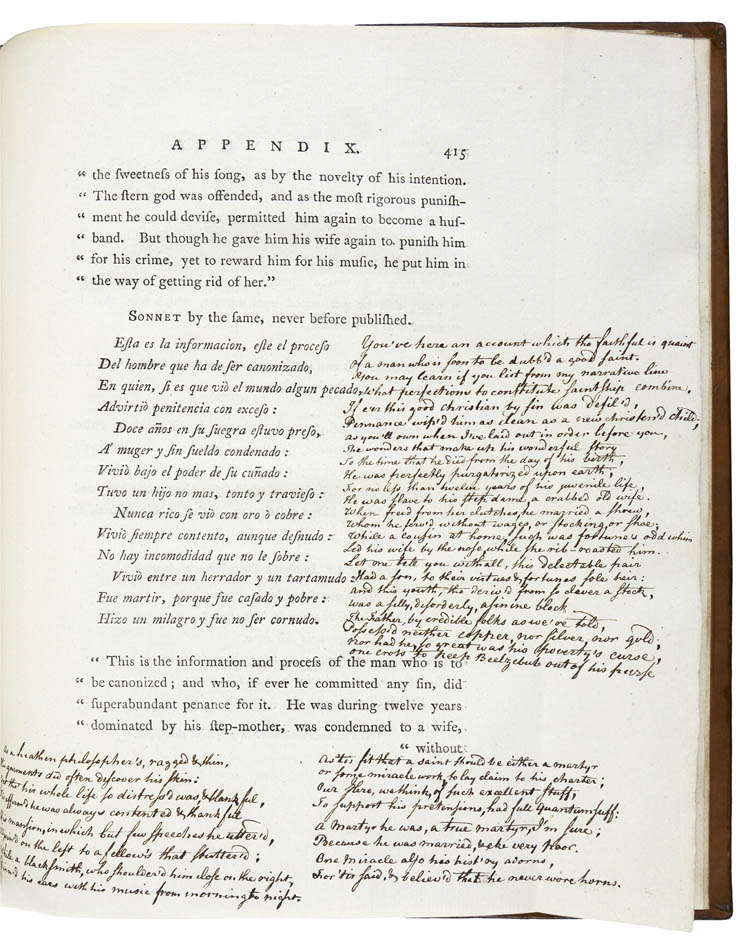 APPENDIX. 415
“ the ſweetneſs of his ſong, as by the novelty of his intention.
“ The ſtern god was offended, and as the moſt rigorous puniſh-
“ ment he could deviſe, permitted him again to become a huſ-
“ band. But though he gave him his wife again to puniſh him
“ for his crime, yet to reward him for his muſic, he put him in
“ the way of getting rid of her.”
SONNET by the ſame, never before publiſhed.
Eſta es la informacion, eſte el proceſo
Del hombre que ha de ſer canonizado,
En quien, ſi es que viò el mundo algun pecado,
Advirtiò penitencia con exceſo :
Doce años en ſu ſuegra eſtuvo preſo,
A' muger y ſin ſueldo condenado :
Viviò bajo el poder de ſu cuñado :
Tuvo un hijo no mas, tonto y travieſo :
Nunca rico ſe viò con oro ò cobre :
Viviò ſiempre contento, aunque deſnudo :
No hay incomodidad que no le ſobre :
Viviò entre un herrador y un tartamudo :
Fue martir, porque fue caſado y pobre :
Hizo un milagro y fue no ſer cornudo.
You've here an account which tho faithful is quaint
Of a man who is ſoon to be dubb'd a good ſaint.
You may learn if you liſt from my narrative line
What perfections to conſtitute ſaintſhip combine.
If e'er this good christian by ſin was defil'd,
Pennance wip'd him as clean as a new christen'd child,
as you'll own when I've laid out in order before you,
The wonders that make up his wonderful ſtory
To the time that he died from the day of his birth,
He was perfectly purgatoriz'd upon earth,
For no leſs than twelve years of his juvenile life,
He was ſlave to his ſtep dame, a crabbed old wife.
When freed from her clutches, he married a ſhrew,
Whom he ſerv'd without wages, or ſtocking, or ſhoe;
While a couſin at home, ſuch was fortune's odd whim
Led his wife by the noſe, while ſhe rib-roasted him.
Let one tell you withall, this delectable pair
Had a ſon, to their virtues & fortunes ſole heir:
and this youth, tho deriv'd from ſo clever a ſtock,
was a ſilly, diſorderly, aſinine block
The Father, by credible folks as we're told,
Poſseſs'd neither copper, nor ſilver, nor gold;
Nor had he, ſo great was his poverty's curse,
one croſs to keep Beelzebub out of his purse
“ This is the information and proceſs of the man who is to
“ be canonized ; and who, if ever he committed any ſin, did
“ ſuperabundant penance for it. He was during twelve years
“ dominated by his ſtep-mother, was condemned to a wife,
“ without
a heathen philoſopher's, ragged & thin,
garments did often diſcover his ſkin:
his whole life ſo diſtreſs'd was, & blankful,
he was always contented & thankful
mansion, in which but few ſpeeches he utter'd,
on the left to a fellow's that ſtutter'd;
a blackſmith, who ſhoulder'd him cloſe on the right
his ears with his music from morning to night.
As tis fit that a ſaint ſhould be either a martyr
or ſome miracle work, to lay claim to his charter;
Our Hero, we think, of ſuch excellent ſtuff,
To ſupport his pretenſions, had full quantum ſuff:
A Martyr he was, a true martyr, I'm ſure;
Because he was married, & eke very Poor.
One Miracle alſo his hist'ry adorns,
For 'tis ſaid, & believ'd that he never wore horns.